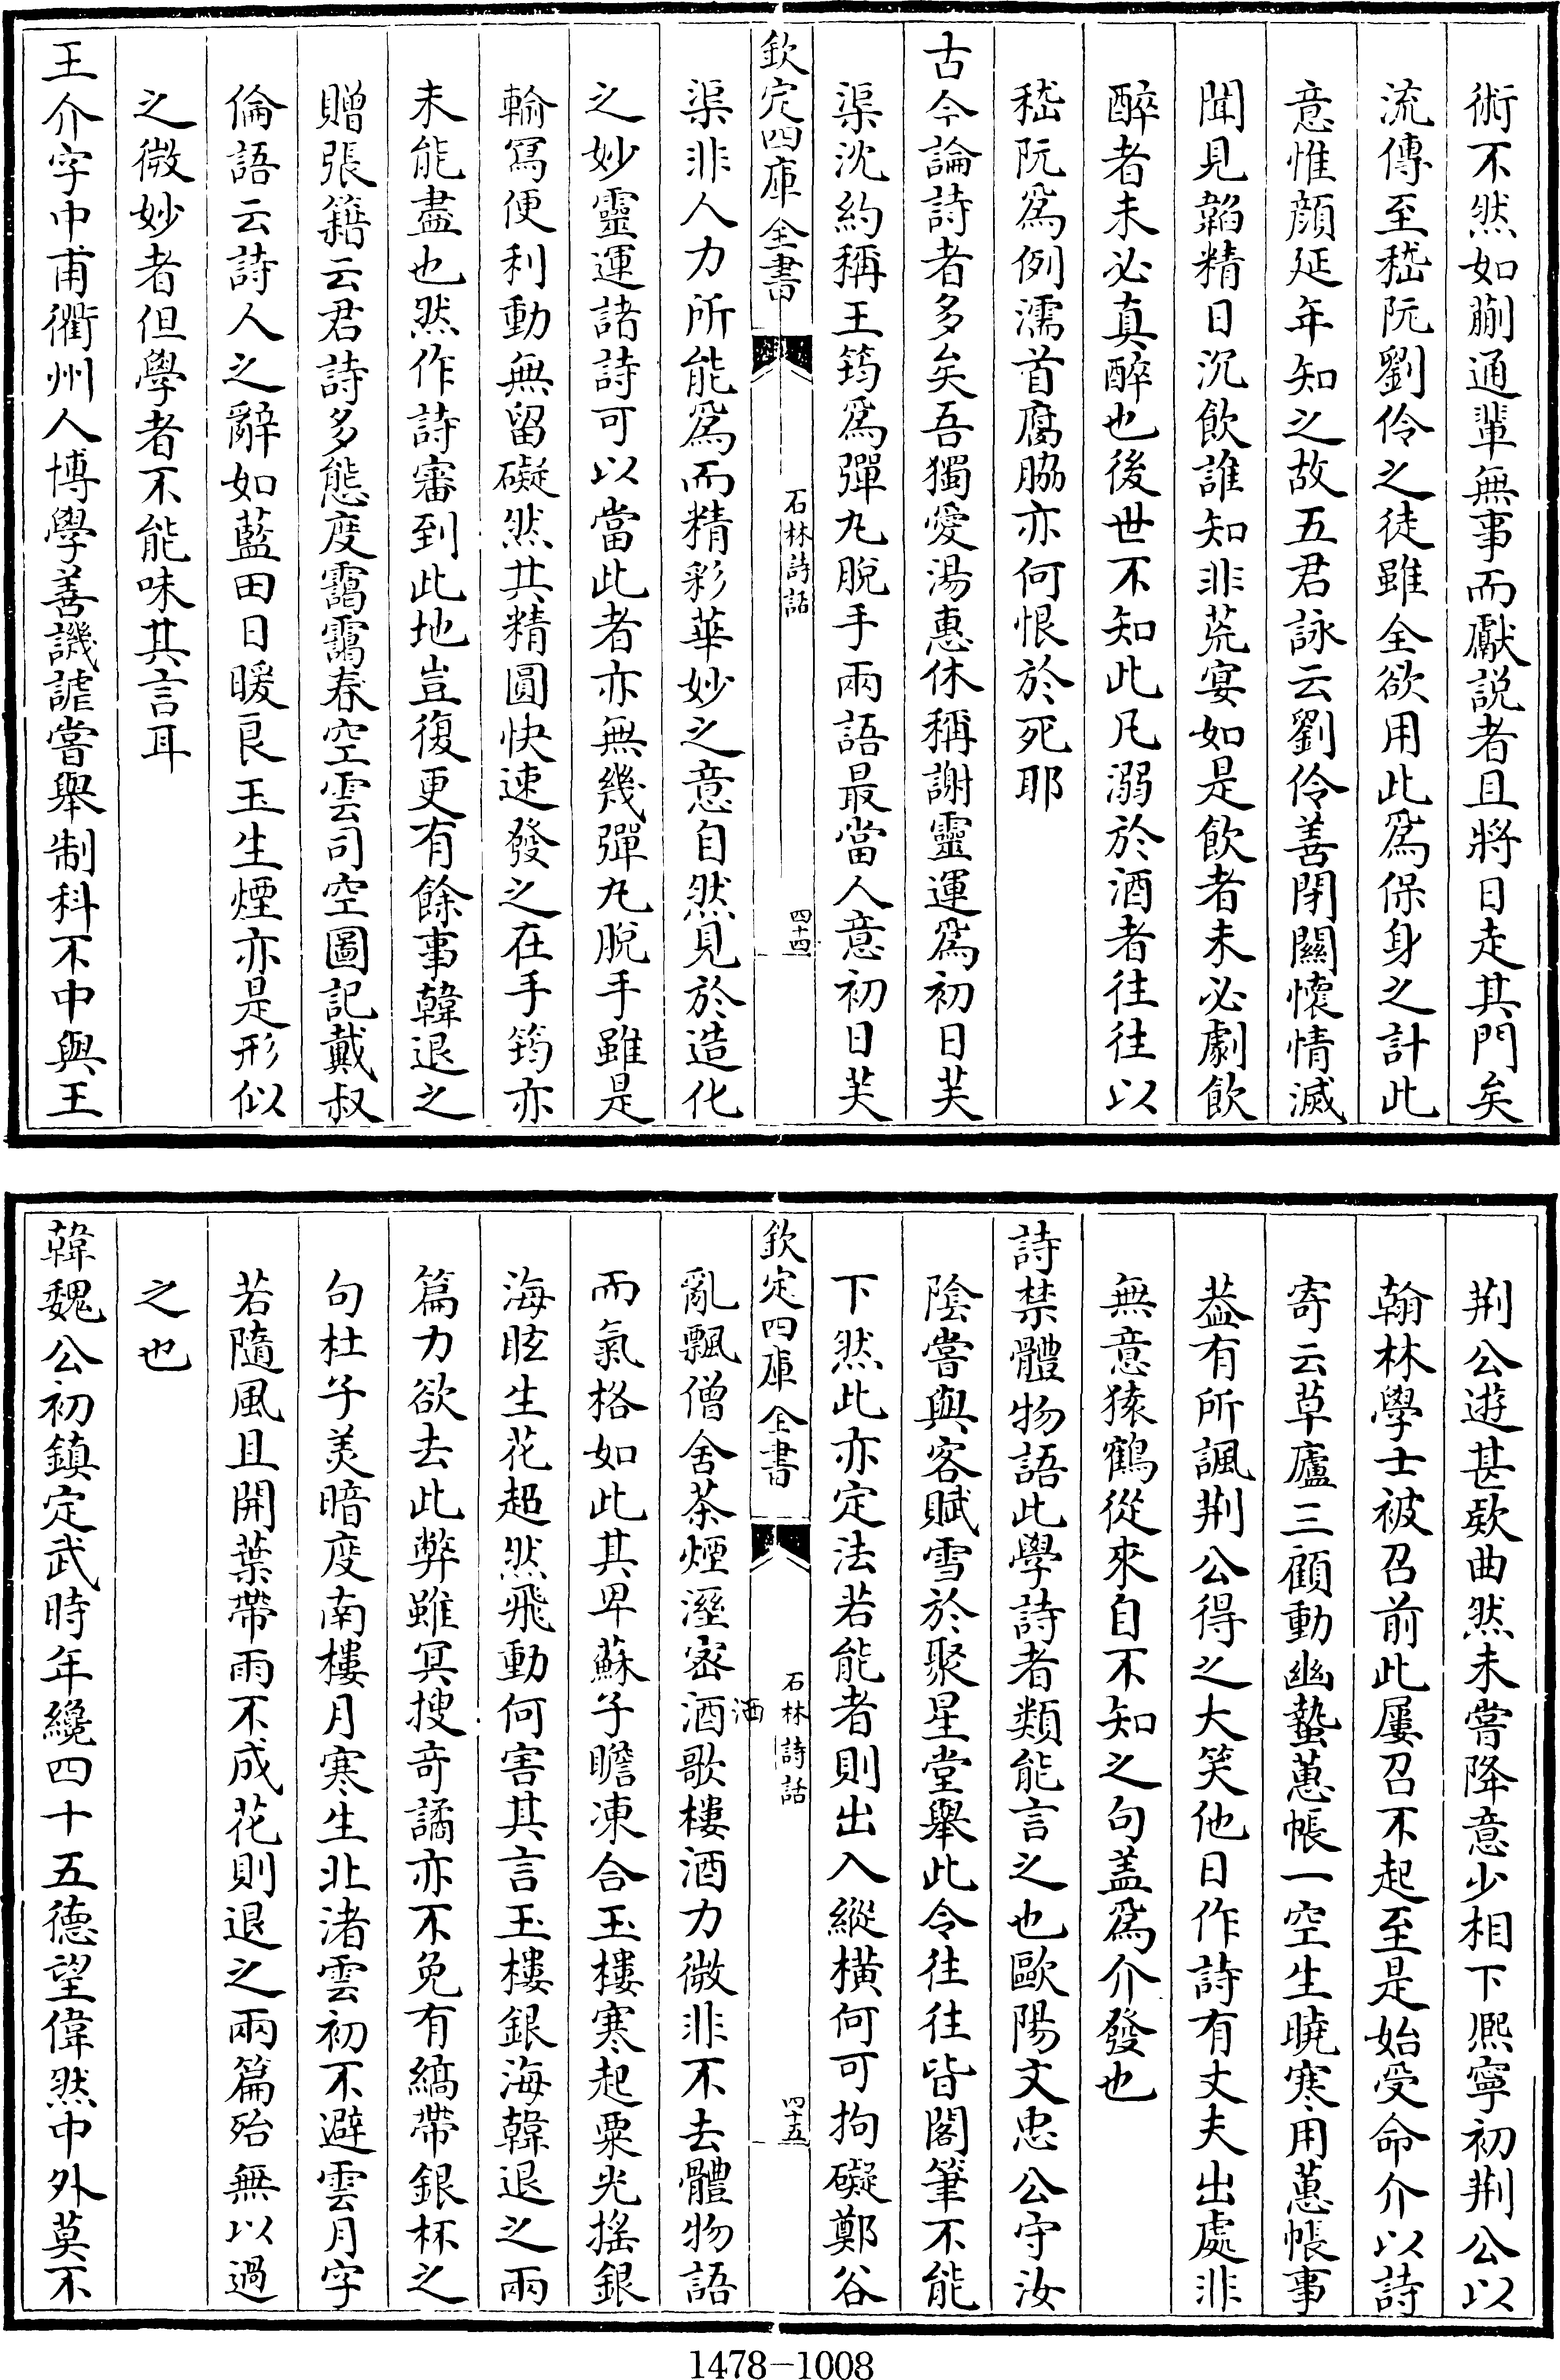 術不然如蒯通輩無事而獻説者且將日走其門矣
流傳至嵇阮劉伶之徒雖全欲用此爲保身之計此
意惟顔延年知之故五君詠云劉伶善閉關懷情滅
聞見韜精日沉飲誰知非荒宴如是飲者未必劇飲
醉者未必真醉也後世不知此凡溺於酒者往往以
嵇阮爲例濡首腐脇亦何恨於死耶
古今論詩者多矣吾獨愛湯惠休稱謝靈運爲初日芙
渠沈約稱王筠爲彈丸脫手兩語最當人意初日芙
欽定四庫全書
石林詩話
四十四
渠非人力所能爲而精彩華妙之意自然見於造化
之妙靈運諸詩可以當此者亦無幾彈丸脫手雖是
輸冩便利動無留礙然其精圓快速發之在手筠亦
未能盡也然作詩審到此地豈復更有餘事韓退之
贈張籍云君詩多態度靄靄春空雲司空圖記戴叔
倫語云詩人之辭如藍田日暖良玉生煙亦是形似
之微妙者但學者不能味其言耳
王介字中甫衢州人博學善譏謔嘗舉制科不中與王
荆公遊甚欵曲然未嘗降意少相下熈寧初荆公以
翰林學士被召前此屢召不起至是始受命介以詩
寄云草廬三顧動幽蟄蕙帳一空生曉寒用蕙帳事
葢有所諷荆公得之大笑他日作詩有丈夫出處非
無意猿鶴從來自不知之句蓋爲介發也
詩禁體物語此學詩者類能言之也歐陽文忠公守汝
陰嘗與客賦雪於聚星堂舉此令往往皆閣筆不能
下然此亦定法若能者則出入縱橫何可拘礙鄭谷
欽定四庫全書
石林詩話
四十五
亂飄僧舍茶煙溼密洒歌樓酒力微非不去體物語
洒
而氣格如此其卑蘇子瞻凍合玉樓寒起粟光搖銀
海眩生花超然飛動何害其言玉樓銀海韓退之兩
篇力欲去此弊雖冥搜奇譎亦不免有縞帶銀杯之
句杜子美暗度南樓月寒生北渚雲初不避雲月字
若隨風且開葉帶雨不成花則退之兩篇殆無以過
之也
韓魏公初鎮定武時年纔四十五德望偉然中外莫不
1478-1008